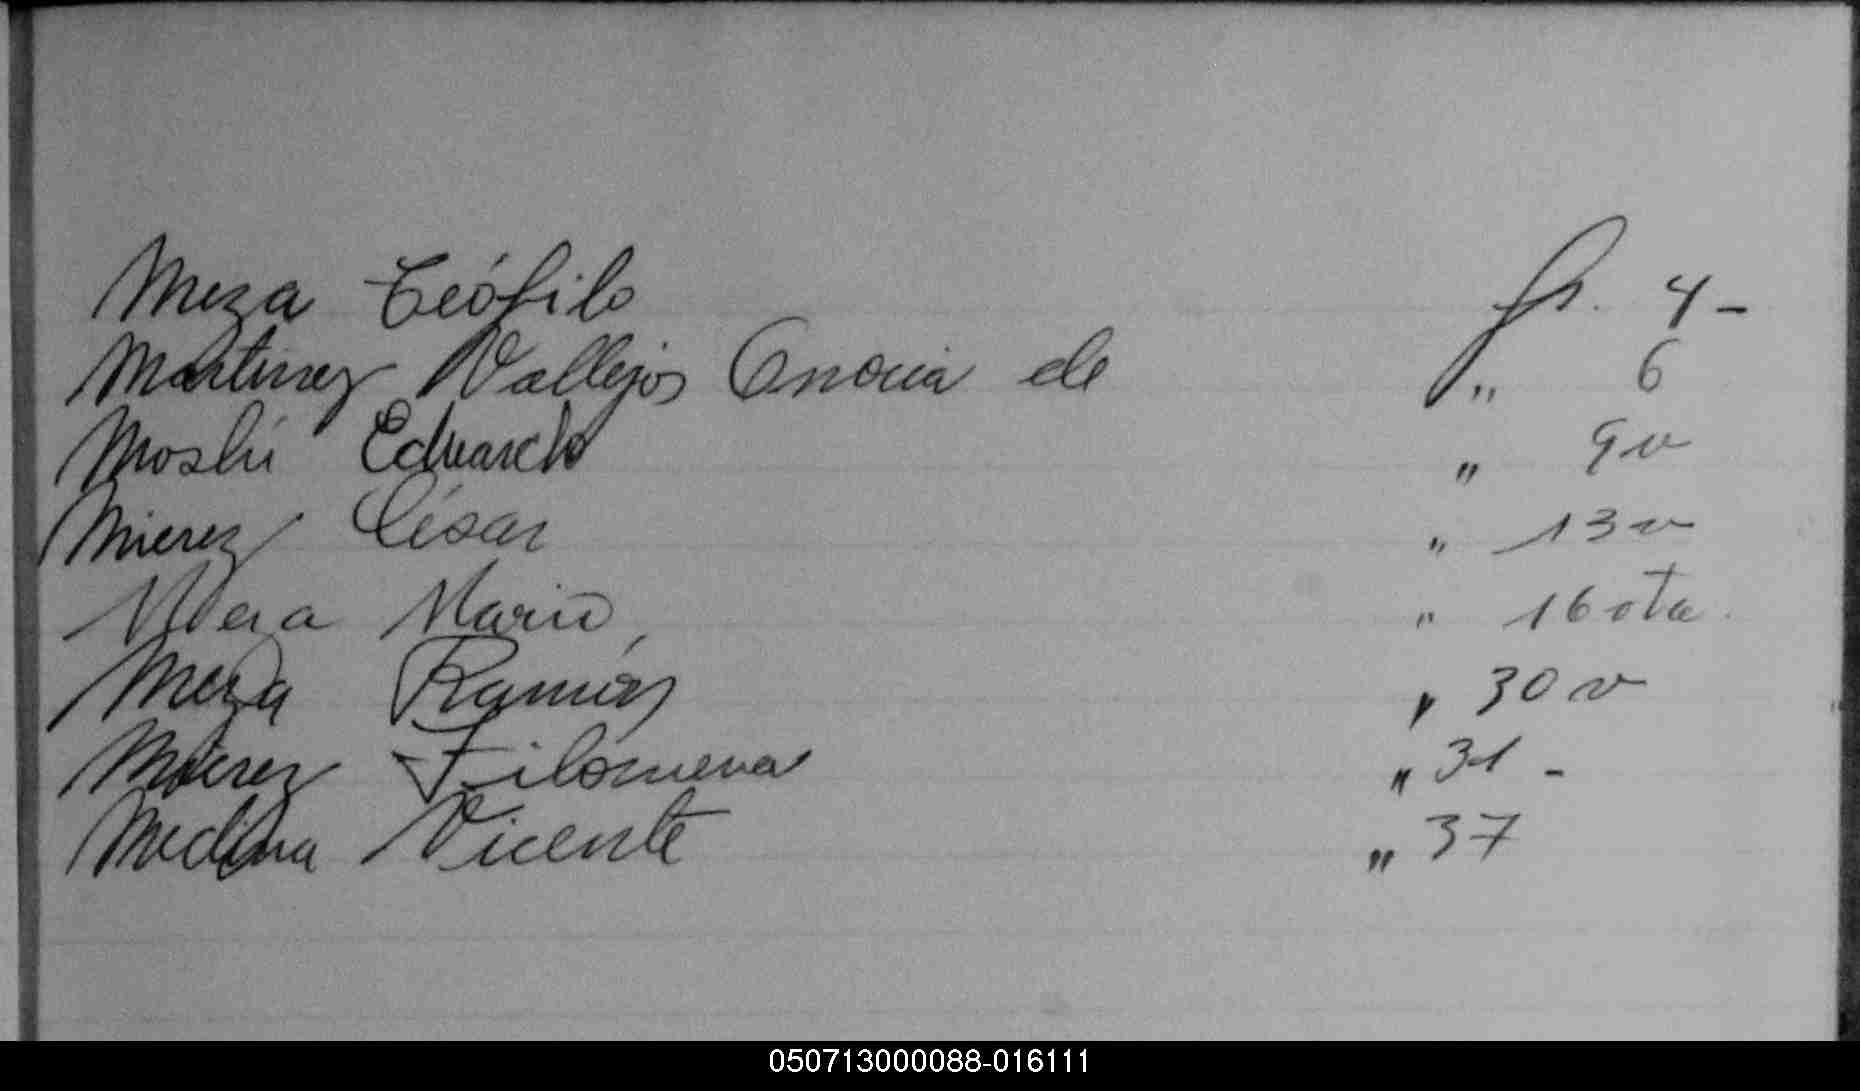 Meza Teófilo fs. 4 -
Martinez Vallejos de " 6
Eduardo " 9 v
Mierez César " 13 v
Mario " 16 vta.
Meza Ramón " 30 v
Mierez Filomena " 31 -
Medina Vicente " 37
050713000088-016111